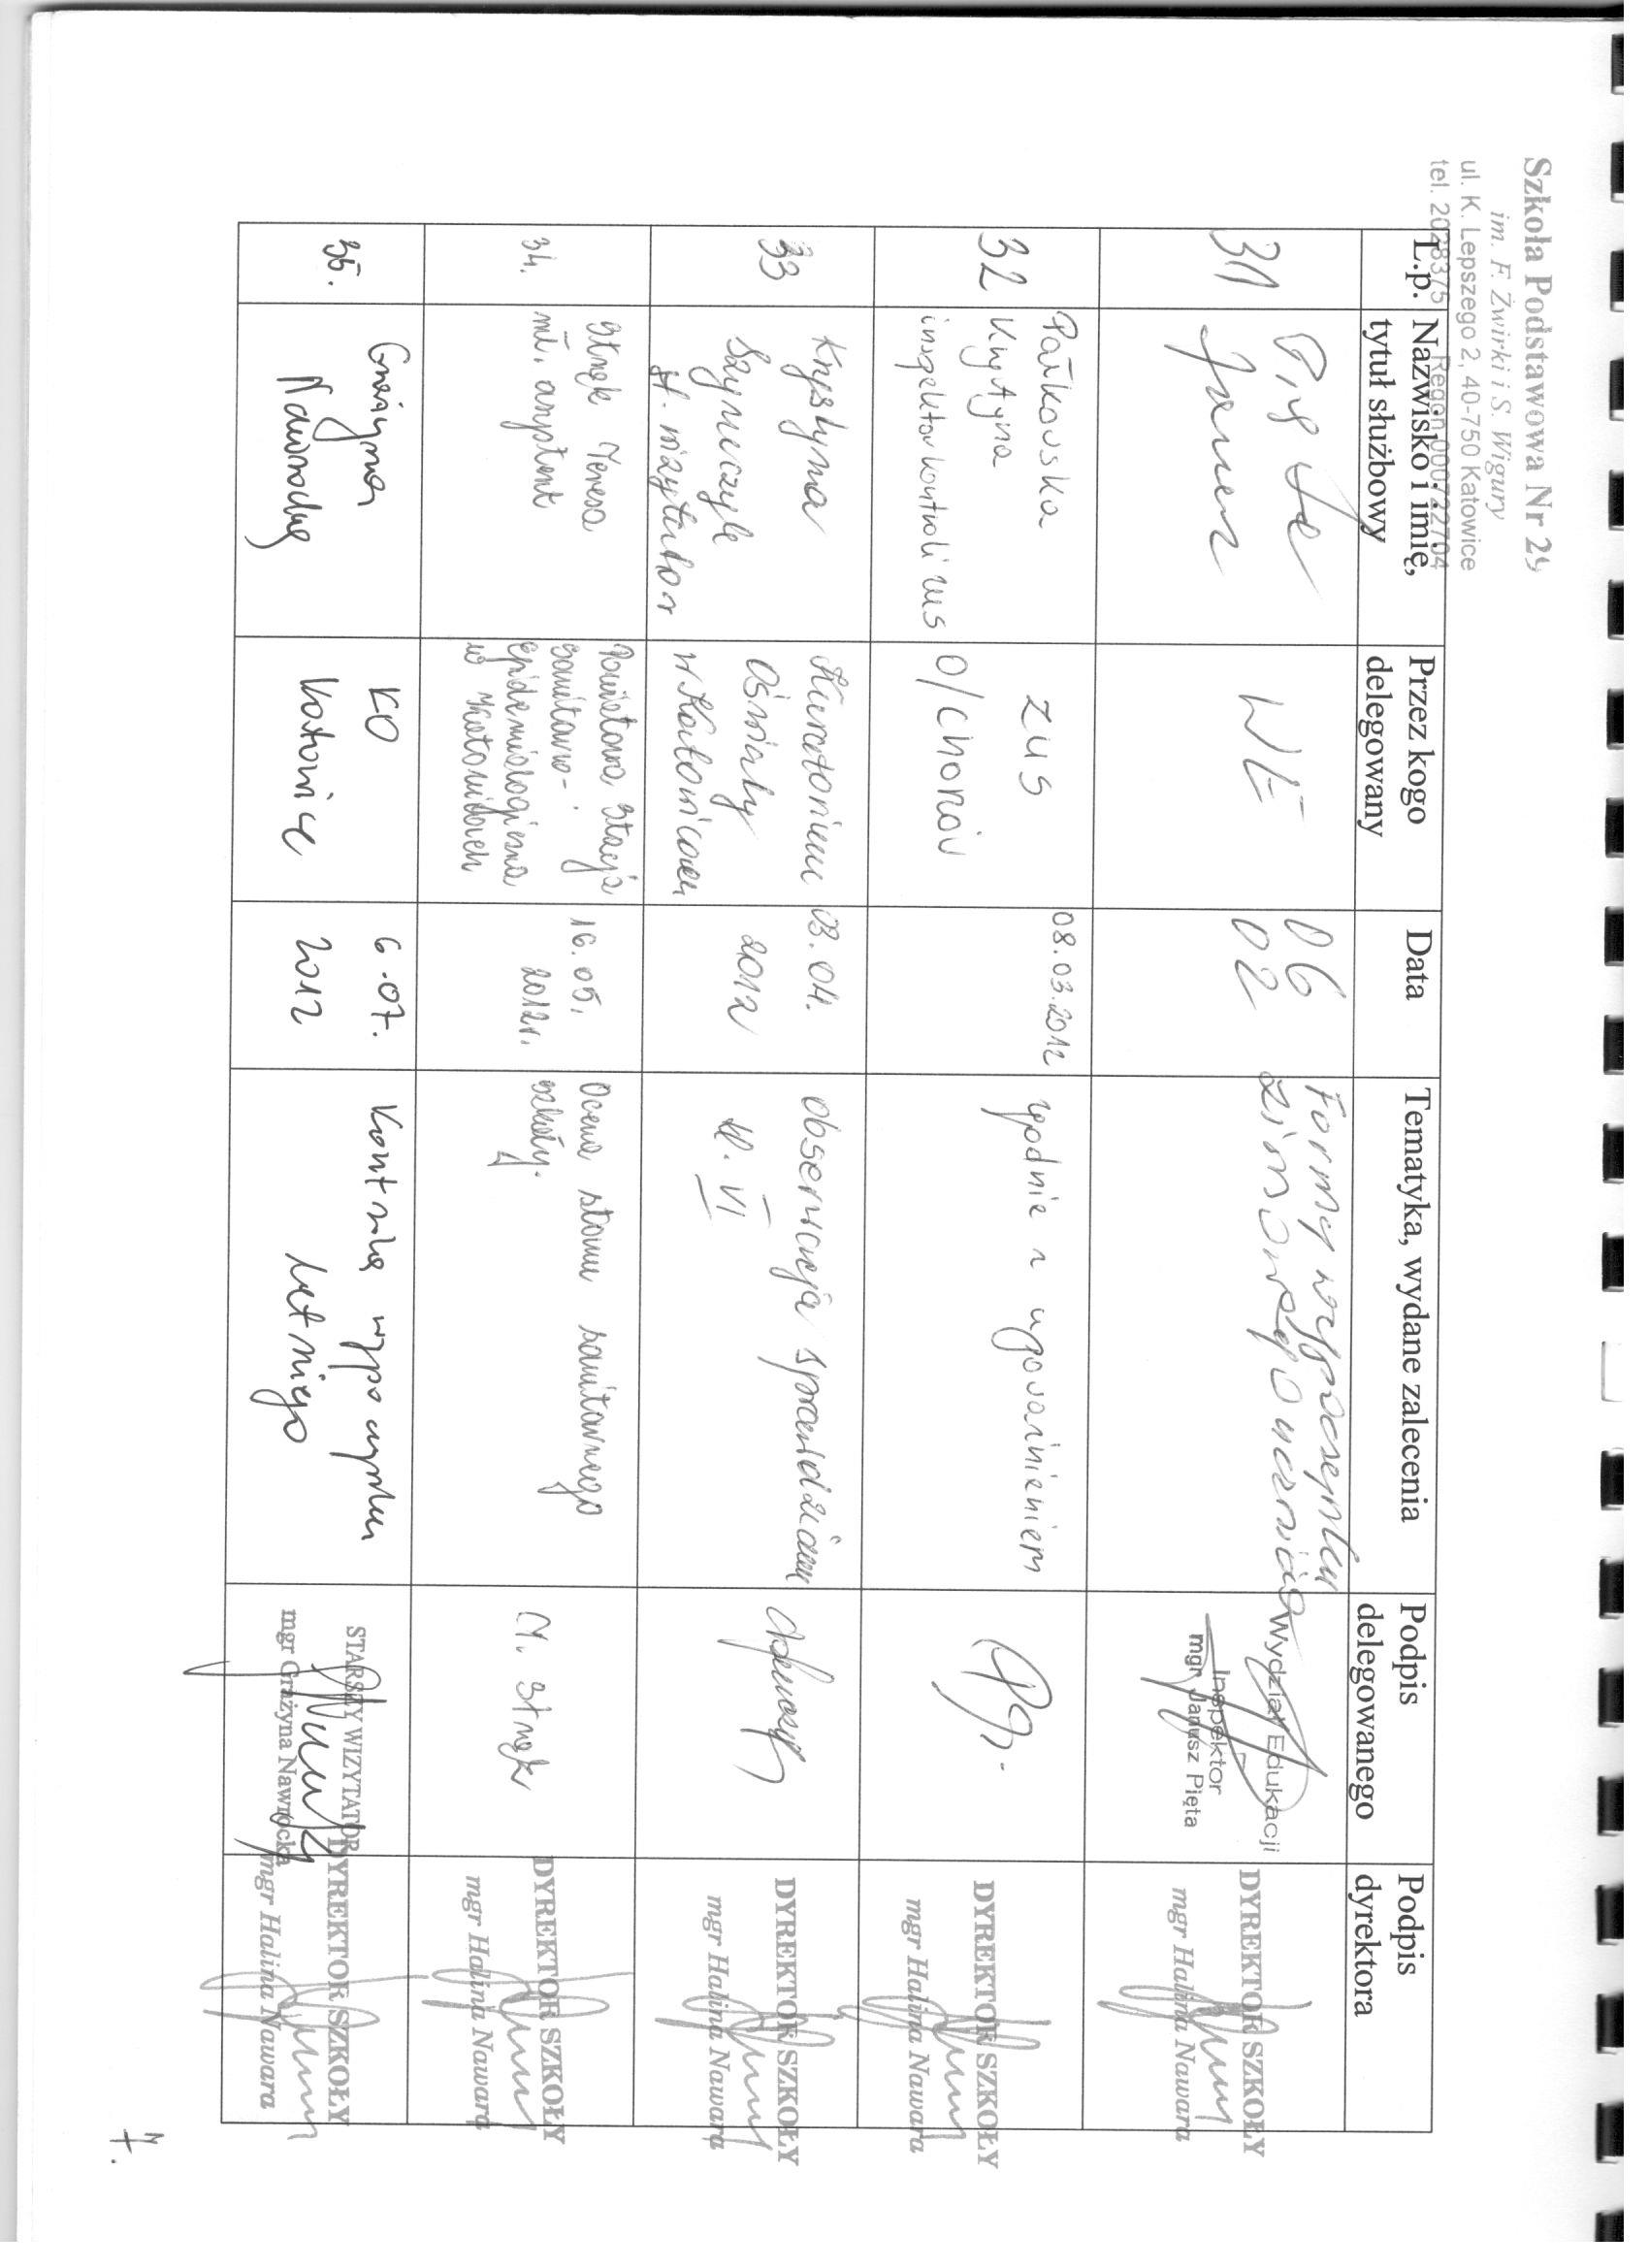 Szkoła Podstawowa Nr 29
im. F. Żwirki i S. Wigury
ul. K. Lepszego 2, 40-750 Katowice
tel. 2028375 Regon 000722704
L.p.
Nazwisko i imię,
tytuł służbowy
Przez kogo
delegowany
Data
Tematyka, wydane zalecenia
Podpis
delegowanego
Podpis
dyrektora
31
Pięta
Janusz
WE
06
02
Formy wypoczynku
zimowego uczniów
Wydział Edukacji
Inspektor
mgr Janusz Pięta
DYREKTOR SZKOŁY
mgr Halina Nawara
32
Pałkowska
Krystyna
inspektor kontroli ZUS
ZUS
O/Chorzów
08.03.2012
zgodnie z upoważnieniem
DYREKTOR SZKOŁY
mgr Halina Nawara
33
Krystyna
Szyneczyk
st. wizytator
Kuratorium
Oświaty
w Katowicach
03.04.
2012
obserwacja sprawdzianu
kl. VI
DYREKTOR SZKOŁY
mgr Halina Nawara
34.
Teresa
mł. asystent
Powiatowa Stacja
Sanitarno-
Epidemiologiczna
w Katowicach
16.05.
2012r.
Ocena stanu sanitarnego
szkoły.
DYREKTOR SZKOŁY
mgr Halina Nawara
35.
Grażyna
Nawrocka
KO
Katowice
6.07.
2012
Kontrola wypoczynku
letniego
STARSZY WIZYTATOR
mgr Grażyna Nawrocka
DYREKTOR SZKOŁY
mgr Halina Nawara
7.